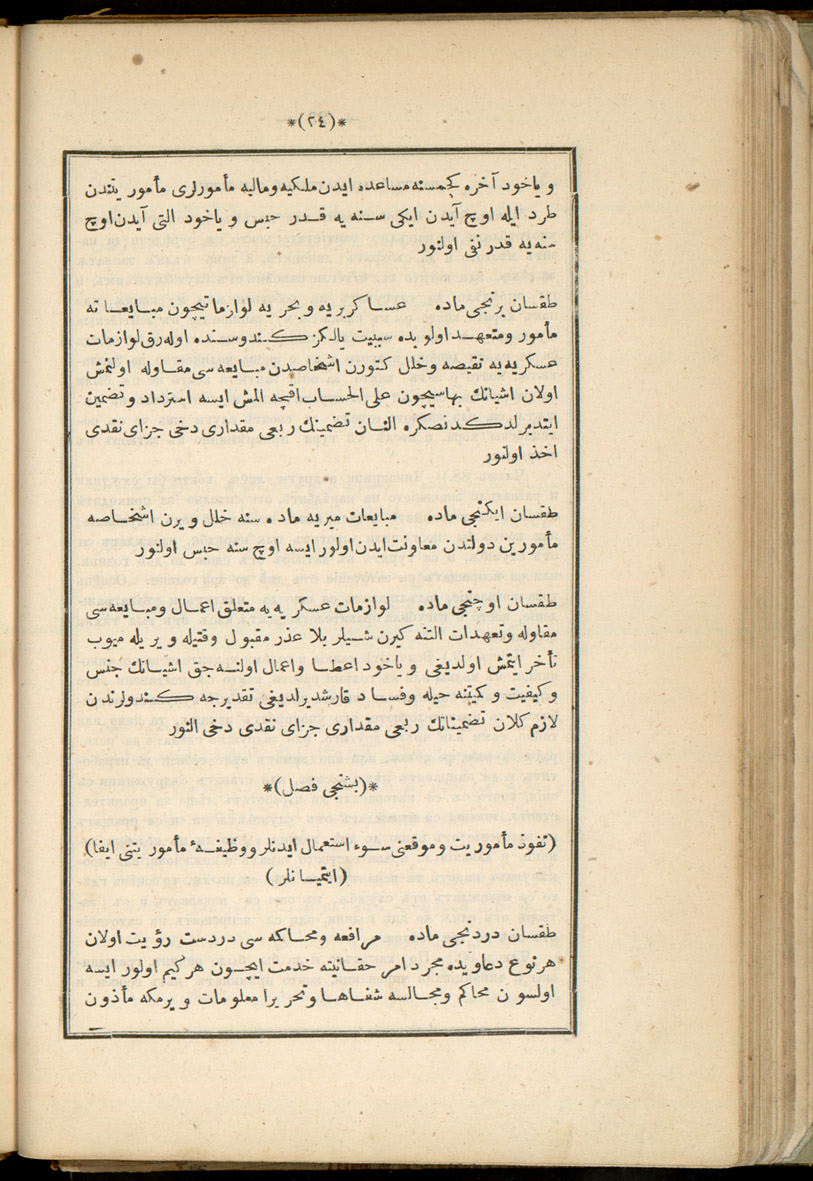 *(٢٤)*
و ياخود آخره كچمسنه مساعده ايدن ملكيه و ماليه مأمورلرى مأموريتندن
طرد ايله اوچ آيدن ايكى سنه يه قدر حبس و ياخود التى آيدن اوچ
سنه يه قدر نفى اولنور
طقسان برنجى ماده عساكر بريه و بحريه لوازماتيچون مبايعاته
مأمور ومتعهد اولوبده سببيت يالكز كندوسنده اوله رق لوازمات
عسكريه يه نقيصه وخلل كتورن اشخاصيدن مبايعه سى مقاوله اولنمش
اولان اشيانك بهاسيچون على الحساب اقچه المش ايسه استرداد وتضمين
ايتديرلدكدنصكره النان تضميناتك ربعى مقدارى دخى جزاى نقدى
اخذ اولنور
طقسان ايكنجى ماده مبايعات ميريه ماده سنه خلل ويرن اشخاصه
مأمورين دولتدن معاونت ايدن اولور ايسه اوچ سنه حبس اولنور
طقسان اوچنجى ماده لوازمات عسكريه يه متعلق اعمال ومبايعه سى
مقاوله وتعهدات التنه كيرن شيلر بلا عذر مقبول وقتيله ويريله ميوب
تأخر ايتمش اولديغى وياخود اعطا واعمال اولنه جق اشيانك جنس
وكيفيت وكيتنه حيله وفساد قارشديرلديغى تقديرجه كندولرندن
لازم كلان تضميناتك ربعى مقدارى جزاى نقدى دخى النور
*(بشنجى فصل)*
(نفوذ مأموريت وموقعنى سوء استعمال ايدنلر ووظيفهٔ مأموريتنى ايفا)
(ايتميانلر)
طقسان دردنجى ماده مرافعه ومحاكمه سى دردست رؤيت اولان
هرنوع دعاويده مجرد امر حقانيته خدمت ايچون هركيم اولور ايسه
اولسون محاكم ومجالسه شفاها وتحريرا معلومات ويرمكه مأذون